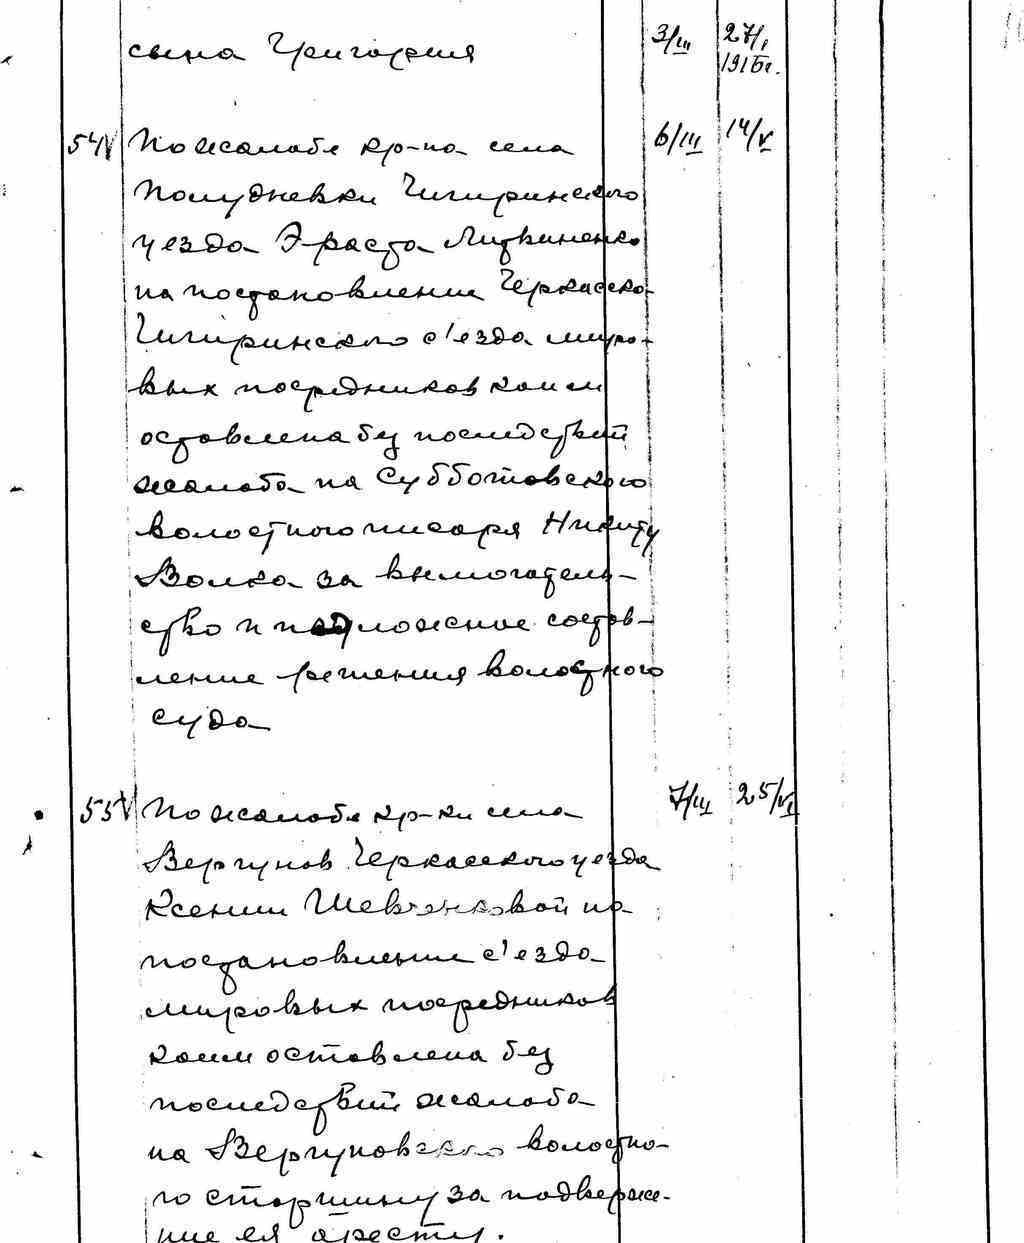 сына Григория 3/III 27/I
1915г.
54 По жалобе кр-на села 6/III 14/V
Полудневки Чигиринского
уезда Эраста Литвиненко
на постановление Черкасско-
Чигиринского с'езда миро-
вых посредников коим
оставлена без последствий
жалоба на Субботовского
волостного писаря Никиту
Волка за вымогатель-
ство и подложное состав-
ление решения волостного
суда
55 По жалобе кр-ки села 7/III 25/VI
Вергунов Черкасского уезда
Ксении Шевченковой на
постановление с'езда
мировых посредников
коим оставлена без
последствий жалоба
на Вергуновского волостно-
го старшину за подверже-
ние ея аресту.